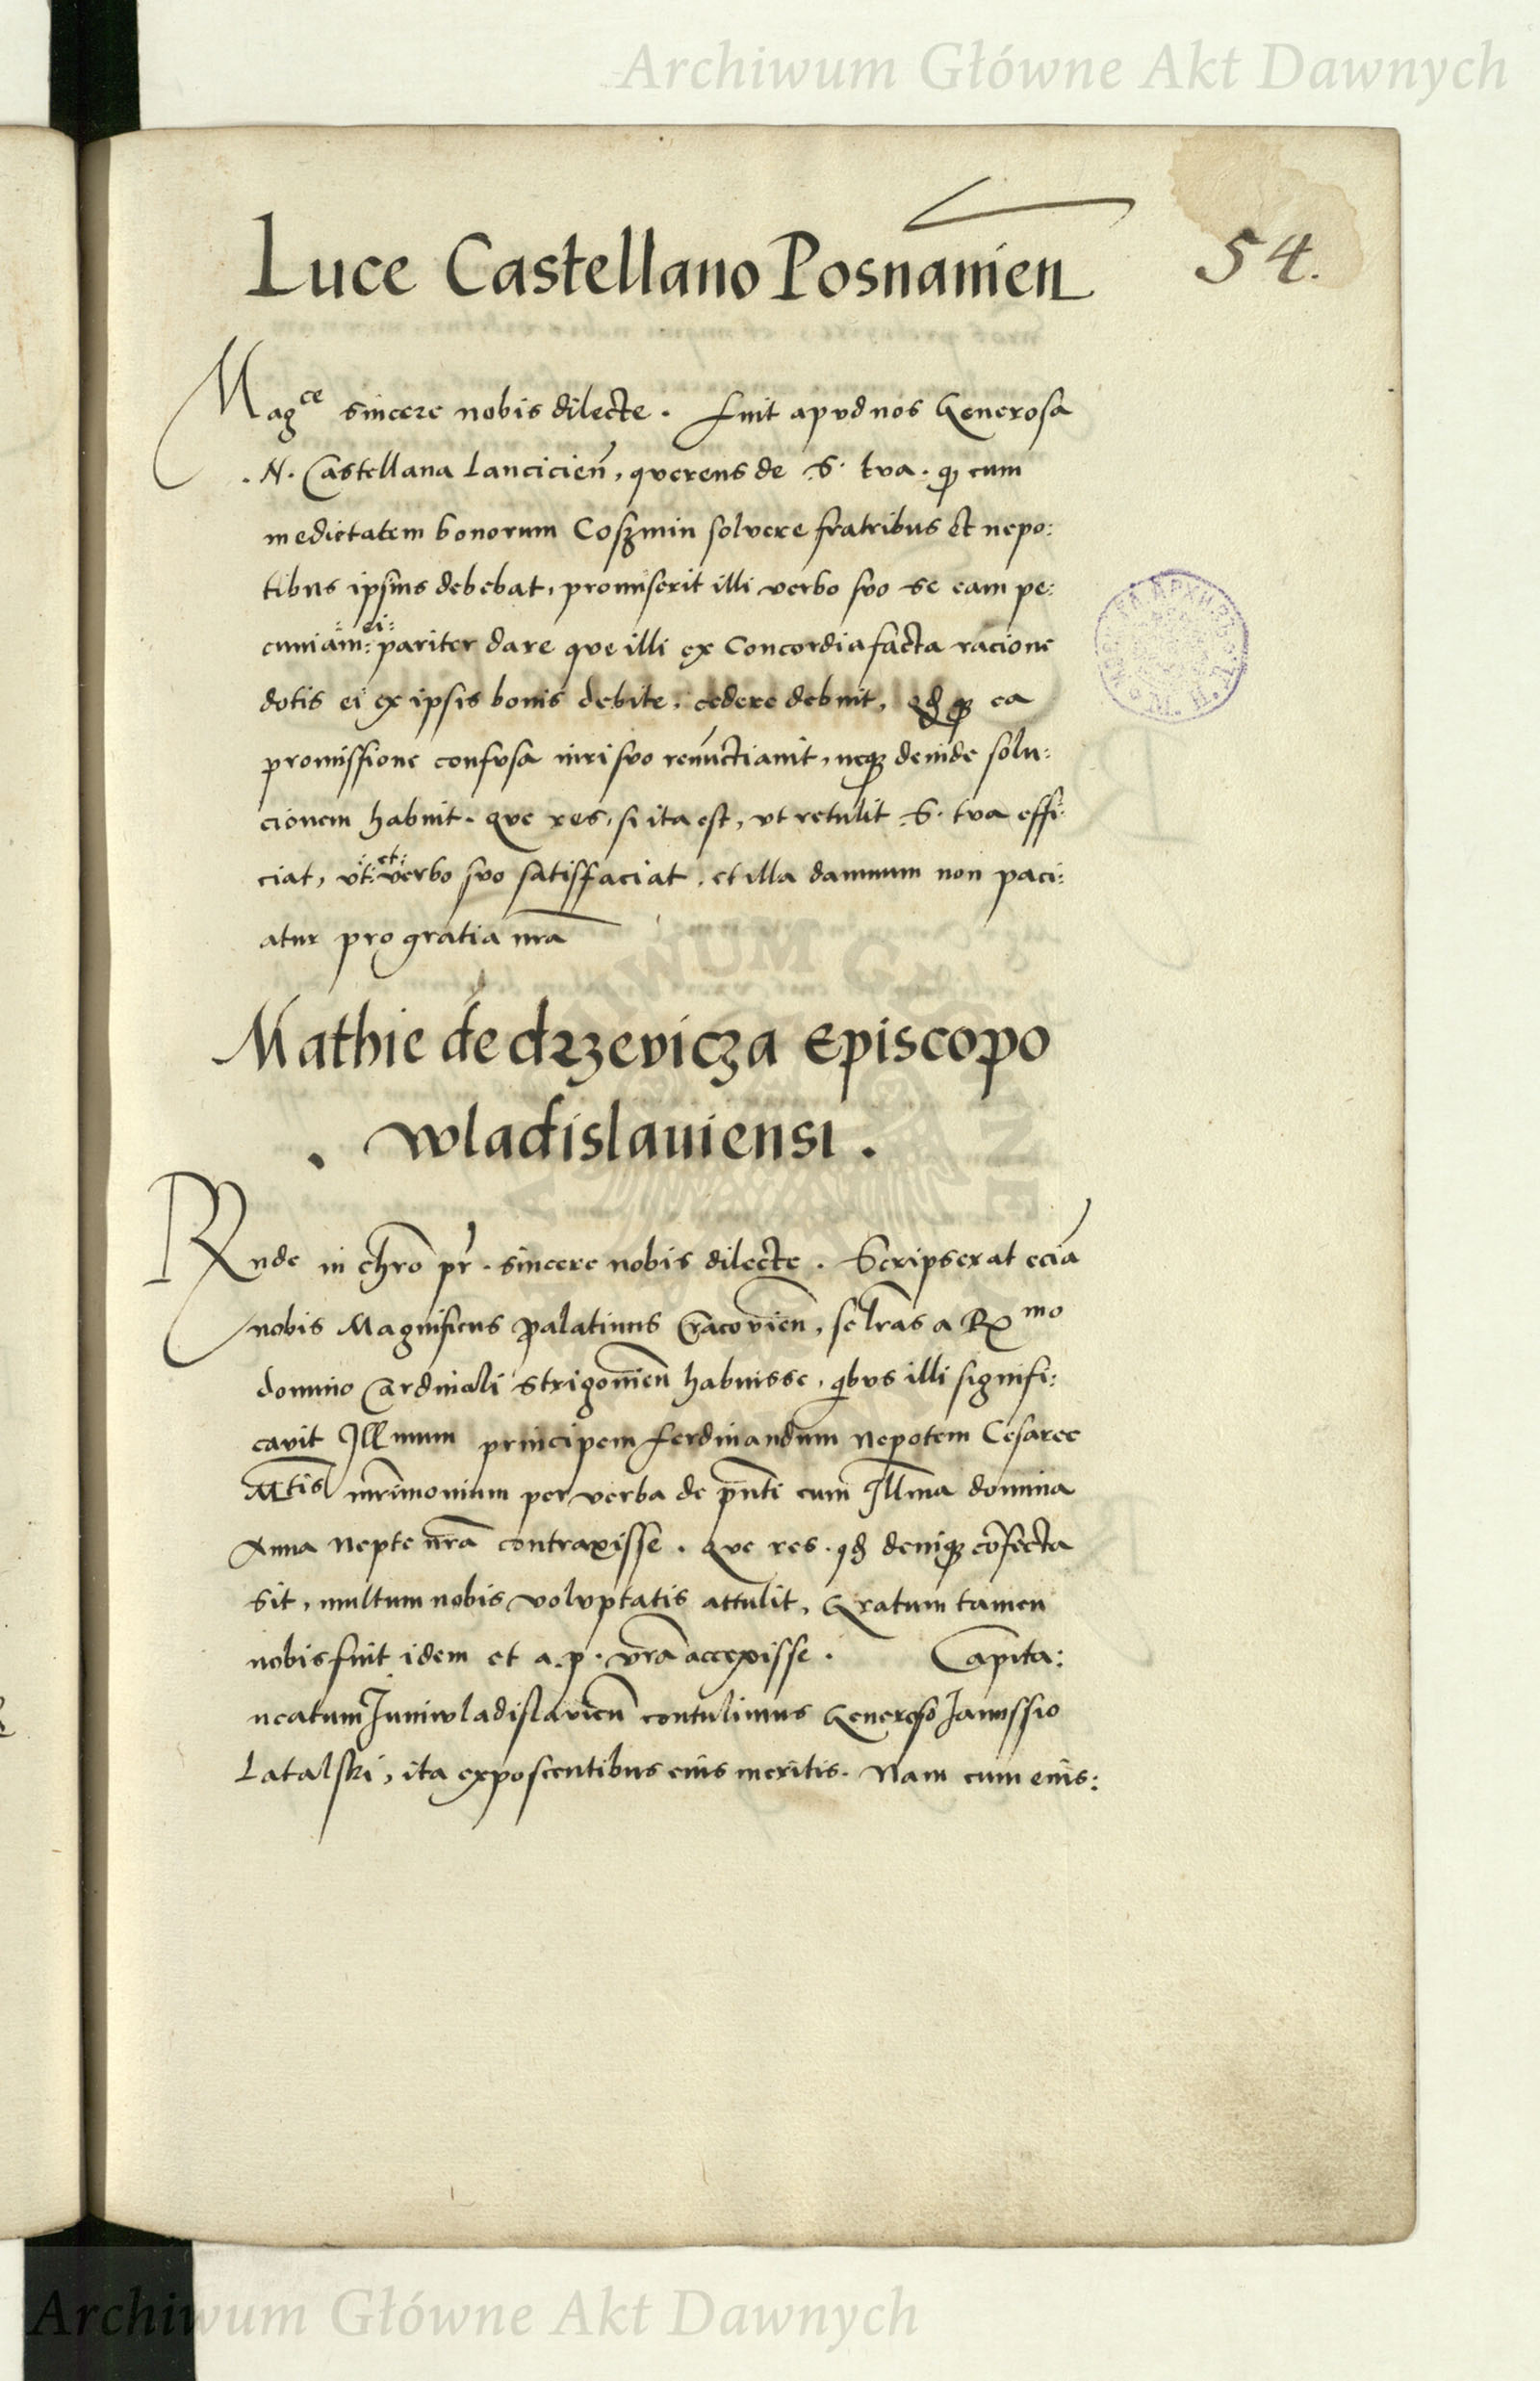 Archiwum Główne Akt Dawnych
54.
Luce Castellano Posnanien
Mag^ce sincere nobis dilecte . Fuit apud nos Generosa
. N. Castellana Lancicien̄, querens de S. tua . q̄ cum
medietatem bonorum Coszmin solvere fratribus et nepo:
tibus ipsius debebat, promiserit illi verbo suo se eam pe:
cuniam :ei: pariter dare que illi ex Concordia facta racione
dotis ei ex ipsis bonis debite, cedere debuit, ea
promissione confusa iuri suo renūctiavit, neqȝ deinde solu:
cionem habuit. Que res, si ita est, ut retulit S. tua effi:
ciat, ut :et: verbo suo satisffaciat, et illa damnum non paci:
atur pro gratia nrā
Mathie de drzevicza Episcopo
. wladislaviensi .
Rnde in chrō pr̄ . sincere nobis dilecte . Scripserat eciā
nobis Magnificus palatinus Cracovien̄, se lrās a Rx^mo
domino Cardinali Strigonien̄ habuisse, qibus illi signifi:
cavit Illmum principem Ferdinandum Nepotem Cesaree
Mtis mr̄imonium per verba de pn̄ti cum Illma domina
Anna Nepte nrā contraxisse . Que res . qd deniqȝ cōfecta
sit, multum nobis voluptatis attulit, Gratum tamen
nobis fuit idem et a . p . vrā accepisse . Capita:
neatum Juniwladislavien̄ contulimus Generoso Janussio
Latalski, ita exposcentibus eius meritis. Nam cum eius:
Archiwum Główne Akt Dawnych